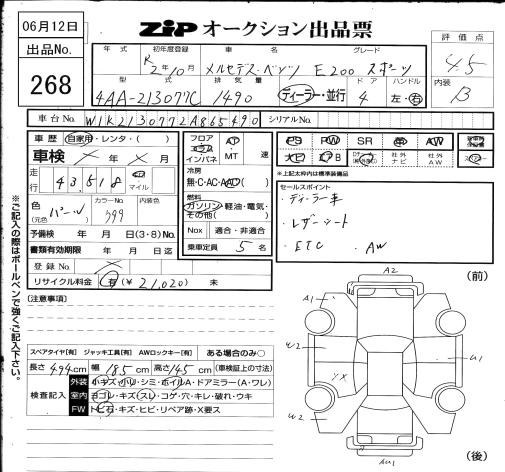 06月12日
出品No.
268
ZIP オークション出品票
評価点
4.5
内装
B
年式 初年度登録 車名 グレード
R2年10月 メルセデス・ベンツ E200 スポーツ
型式 排気量 ドア ハンドル
4AA-213077C 1490 ディーラー・並行 4 左・右
車台No. W1K2130772A865490 シリアルNo.
車歴 自家用・レンタ・( )
車検 × 年 × 月
走行 43,518 km マイル
色(元色) パール カラーNo. 799 内装色
予備検 年 月 日(3・8)No.
書類有効期限 年 月 日迄
登録No. ×
リサイクル料金 有(¥21,020) 未
フロア コラム インパネ AT・MT 速
冷房
無・C・AC・AAC
燃料
ガソリン・軽油・電気・その他( )
Nox 適合・非適合
乗車定員 5名
PS PW SR 革 AW
ナビ エアB 社外ナビ 社外AW
※上記太枠内は標準装備品
セールスポイント
・ディーラー車
・レザーシート
・ETC ・AW
(注意事項)
スペアタイヤ[有] ジャッキ工具[有] AWロックキー[有] ある場合のみ○
長さ 494cm 幅 185cm 高さ 145cm (車検証上の寸法)
検査記入
外装 小キズ・小凹・シミ・ホイルA・ドアミラー(A・ワレ)
室内 ヨゴレ・キズ・スレ・コゲ・穴・キレ・破れ・ウキ
FW トビ石・キズ・ヒビ・リペア跡・X要ス
※ご記入の際はボールペンで強くご記入下さい。
(前)
A2
A1
U2
U1
YX
U2
AU1
(後)